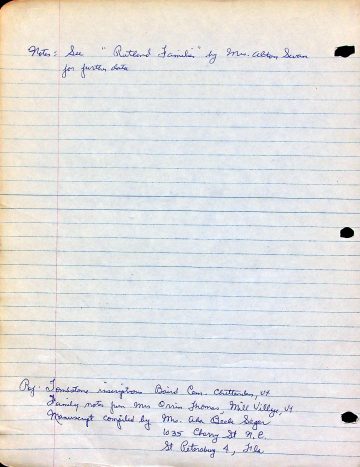 Notes: See "Rutland Families" by Mrs. Alton Swan
for further data
Ref. Tombstone inscriptions Baird Cem. Chittenden, Vt
Family notes from Mrs Orrin Thomas, Mill Village, Vt
Manuscript compiled by Mrs. Ada Beck Seger
1035 Cherry St N.E.
St. Petersburg 4, Fla.